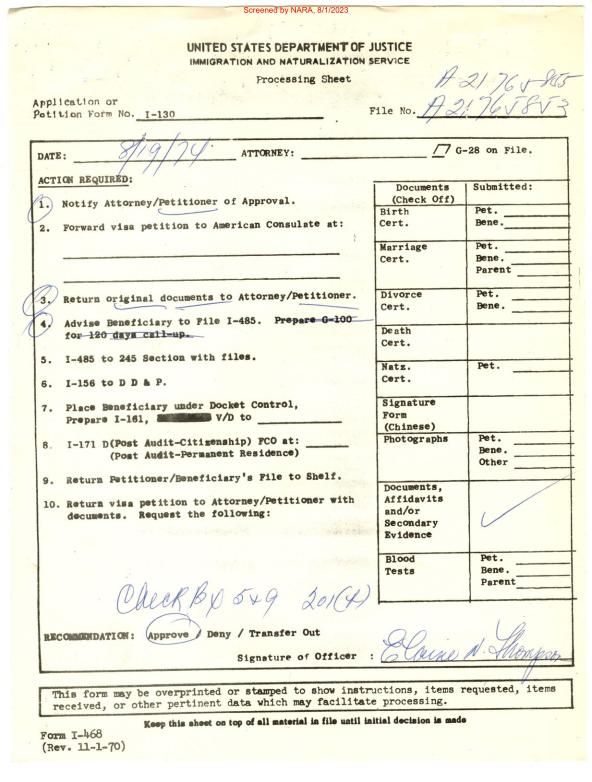 Screened by NARA, 8/1/2023
UNITED STATES DEPARTMENT OF JUSTICE
IMMIGRATION AND NATURALIZATION SERVICE
Processing Sheet
A 21 765 855
Application or
Petition Form No. I-130 File No. A 21 765 853
DATE: 8/19/74 ATTORNEY: G-28 on File.
ACTION REQUIRED:
1. Notify Attorney/Petitioner of Approval.
2. Forward visa petition to American Consulate at:
3. Return original documents to Attorney/Petitioner.
4. Advise Beneficiary to File I-485. Prepare G-100
for 120 days call-up.
5. I-485 to 245 Section with files.
6. I-156 to D D & P.
7. Place Beneficiary under Docket Control,
Prepare I-161, V/D to
8. I-171 D(Post Audit-Citizenship) FCO at:
(Post Audit-Permanent Residence)
9. Return Petitioner/Beneficiary's File to Shelf.
10. Return visa petition to Attorney/Petitioner with
documents. Request the following:
Documents Submitted:
(Check Off)
Birth Pet.
Cert. Bene.
Marriage Pet.
Cert. Bene.
Parent
Divorce Pet.
Cert. Bene.
Death
Cert.
Natz. Pet.
Cert.
Signature
Form
(Chinese)
Photographs Pet.
Bene.
Other
Documents,
Affidavits
and/or
Secondary
Evidence
Blood Pet.
Tests Bene.
Parent
Check Bx 5+9 201(A)
RECOMMENDATION: Approve / Deny / Transfer Out
Signature of Officer : Elaine N. Thompson
This form may be overprinted or stamped to show instructions, items requested, items
received, or other pertinent data which may facilitate processing.
Keep this sheet on top of all material in file until initial decision is made
Form I-468
(Rev. 11-1-70)